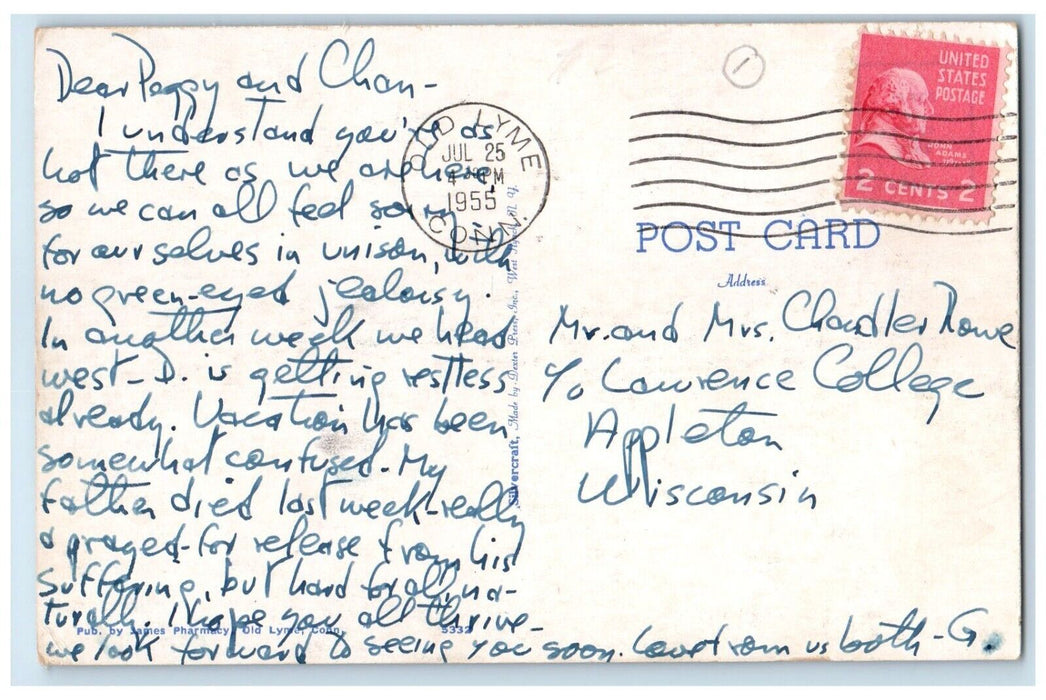 Dear Peggy and Chan-
I understand you're as
hot there as we are here,
so we can all feel sorry
for ourselves in unison, with
no green-eyed jealousy.
In another week we head
west - D. is getting restless
already. Vacation has been
somewhat confused - My
father died last week - really
a prayed-for release from his
suffering, but hard for all, na-
turally. I hope you all thrive -
we look forward to seeing you soon. Love from us both - G.
Pub. by James Pharmacy, Old Lyme, Conn.
5332
Silvercraft, Made by Dexter Press, Inc., West Nyack, N. Y.
OLD LYME
JUL 25
4 PM
1955
CONN.
1
UNITED
STATES
POSTAGE
JOHN
ADAMS
2 CENTS 2
POST CARD
Address
Mr. and Mrs. Chandler Rowe
c/o Lawrence College
Appleton
Wisconsin